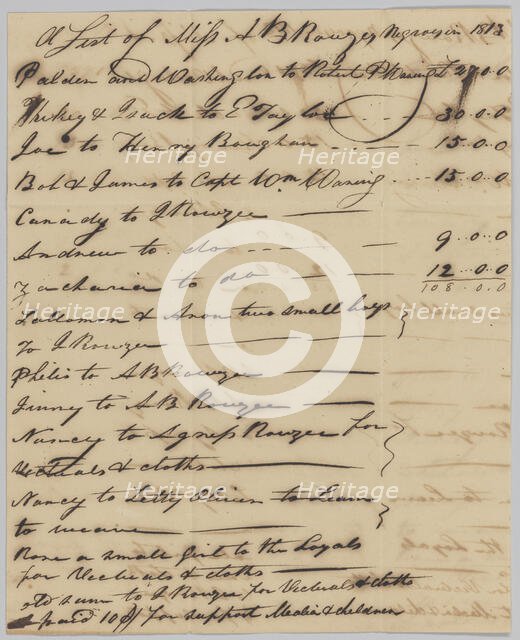 A List of Miss A B Rouzes Negroes in 1813
Palden and Washington to Robert P Waring £ 27.0.0
& Isack to E Taylor 30.0.0
Joe to Henry Boughan 15.0.0
Bob & James to Capt Wm Waring 15.0.0
Canady to J Rowzee
Andrew to do 9..0..0
Zacharia to do 12..0..0
108.0.0
& two small boys
To J Rowzee
Philis to A B Rowzee
Jinney to A B Rowzee
Nancy to Agness Rowzee for
Victuals & cloths
Nancy to Letty to Learn
to weave
Rose a small girl to the Loyals
for Vectuals & cloths
old to J Rouzee for Vectuals & cloths
& paid 10 for support & children
heritage
Heritage
Images